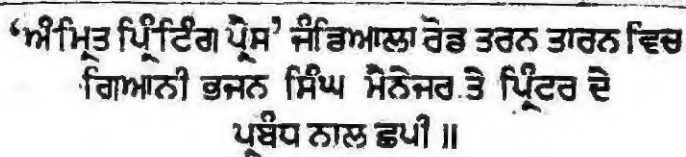 ‘ਅੰਮ੍ਰਿਤ ਪ੍ਰਿੰਟਿੰਗ ਪ੍ਰੈਸ’ ਜੰਡਿਆਲਾ ਰੋਡ ਤਰਨ ਤਾਰਨ ਵਿਚ
ਗਿਆਨੀ ਭਜਨ ਸਿੰਘ ਮੈਨੇਜਰ ਤੇ ਪ੍ਰਿੰਟਰ ਦੇ
ਪ੍ਰਬੰਧ ਨਾਲ ਛਪੀ ॥